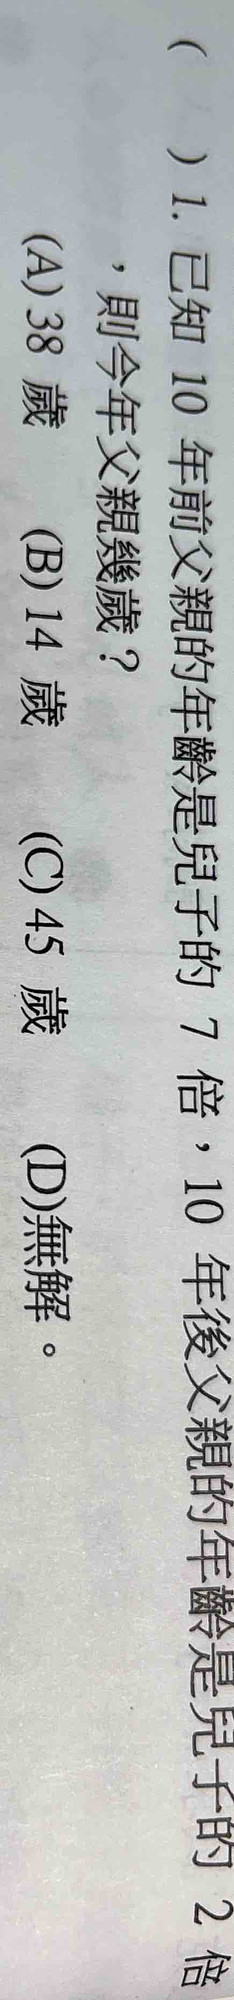 (　　) 1. 已知 10 年前父親的年齡是兒子的 7 倍，10 年後父親的年齡是兒子的 2 倍
，則今年父親幾歲？
(A) 38 歲　(B) 14 歲　(C) 45 歲　(D)無解。